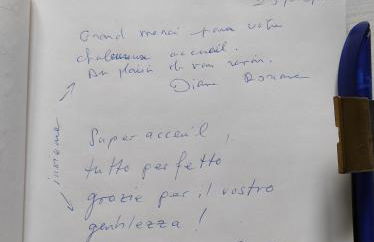 Grand merci pour votre
chaleureux accueil.
Au plaisir de vous revoir.
Diane
insieme
Super acceuil,
tutto perfetto
grazie per il vostro
gentilezza!